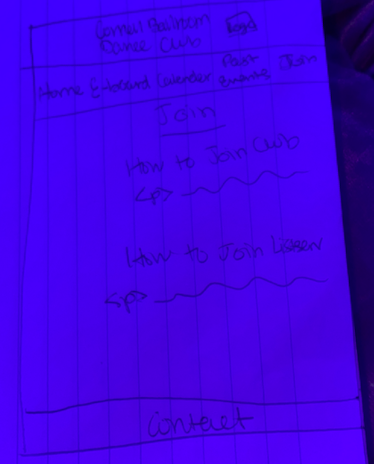 Cornell Ballroom
Dance Club
Logo
Home E-board Calendar Past Events Join
Join
How to Join Club
<p>
How to Join Listserv
<p>
Contact